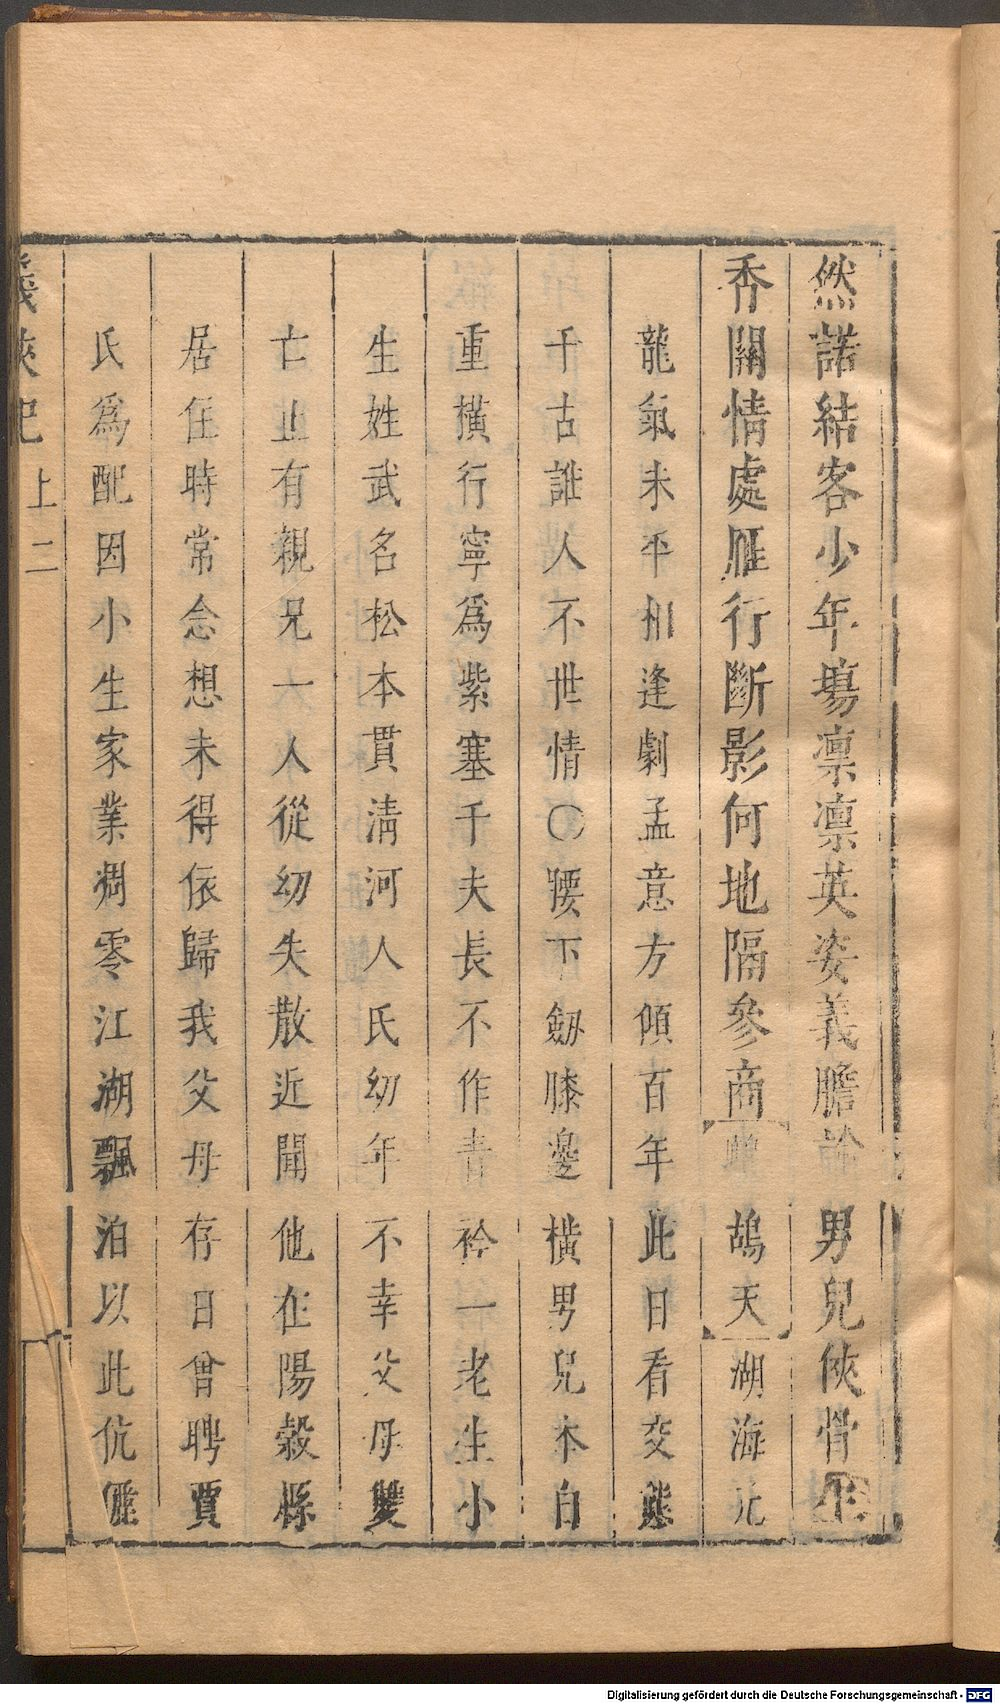 然諾結客少年場凛凛英姿義膽論男兒俠骨生
香關情處雁行斷影何地隔參商鷓鴣天湖海元
龍氣未平相逢劇孟意方傾百年此日看交態
千古誰人不世情〇腰下劔膝邊橫男兒本自
重橫行寧爲紫塞千夫長不作青衿一老生小
生姓武名松本貫清河人氏幼年不幸父母雙
亡止有親兄一人從幼失散近聞他在陽穀縣
居住時常念想未得依歸我父母存日曾聘賈
氏爲配因小生家業凋零江湖飄泊以此伉儷
義俠記 上 二
Digitalisierung gefördert durch die Deutsche Forschungsgemeinschaft - DFG